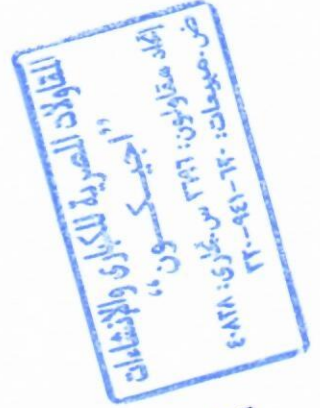 المقاولات المصرية للكبارى والإنشاءات
"اجيكــون"
إتحاد مقاولون: ٣٥٨٦ س.تجارى: ٤٠٨٢٨
ض.مبيعات: ٦٣٠-٩٤١-٢٢٠